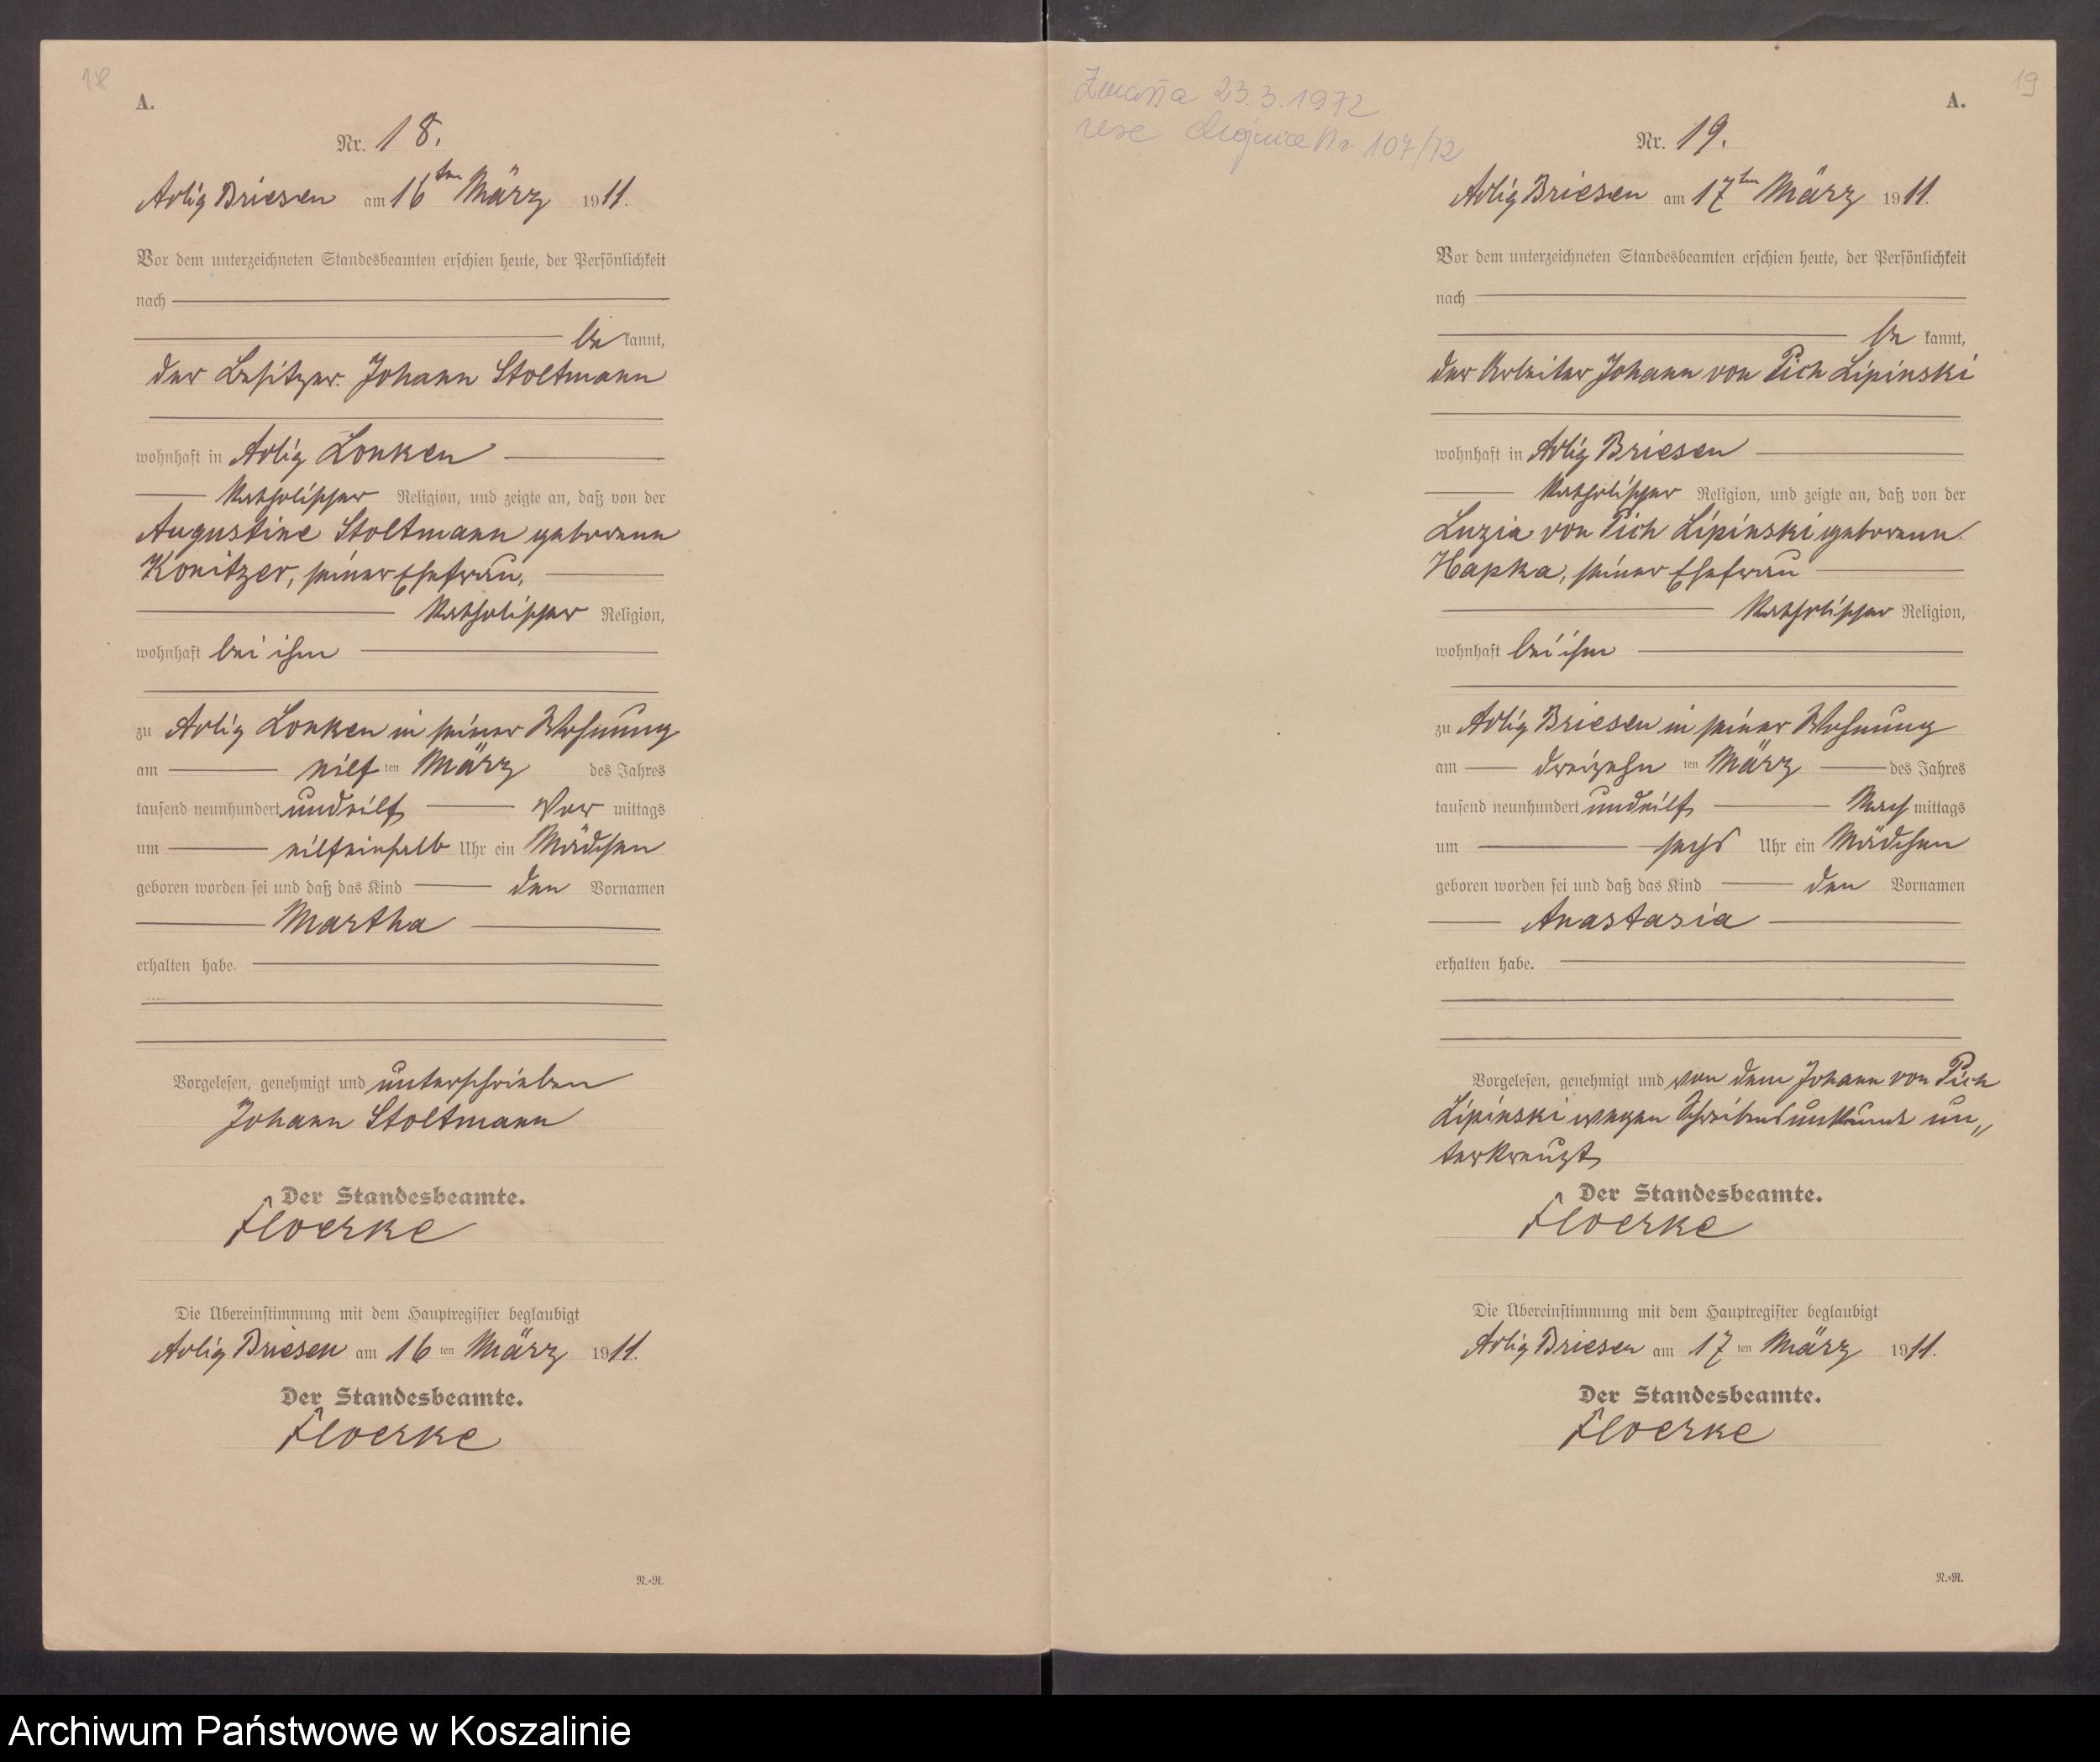 18
A.
Nr. 18.
Adlig Briesen am 16ten März 1911.
Vor dem unterzeichneten Standesbeamten erschien heute, der Persönlichkeit
nach
be kannt,
der Besitzer Johann Stoltmann
wohnhaft in Adlig Lonken
katholischer Religion, und zeigte an, daß von der
Augustine Stoltmann geborene
Konitzer, seiner Ehefrau,
katholischer Religion,
wohnhaft bei ihm
zu Adlig Lonken in seiner Wohnung
am elf ten März des Jahres
tausend neunhundert undelf Vor mittags
um elfeinhalb Uhr ein Mädchen
geboren worden sei und daß das Kind den Vornamen
Martha
erhalten habe.
Vorgelesen, genehmigt und unterschrieben
Johann Stoltmann
Der Standesbeamte.
Floerke
Die Übereinstimmung mit dem Hauptregister beglaubigt
Adlig Briesen am 16 ten März 1911.
Der Standesbeamte.
Floerke
N.=R.
19
A.
23.3.1972
Chojnice Nr. 107/72
Nr. 19.
Adlig Briesen am 17ten März 1911.
Vor dem unterzeichneten Standesbeamten erschien heute, der Persönlichkeit
nach
be kannt,
der Arbeiter Johann von Pich Lipinski
wohnhaft in Adlig Briesen
katholischer Religion, und zeigte an, daß von der
Luzia von Pich Lipinski geborene
Hapka, seiner Ehefrau
katholischer Religion,
wohnhaft bei ihm
zu Adlig Briesen in seiner Wohnung
am dreizehn ten März des Jahres
tausend neunhundert undelf Nach mittags
um sechs Uhr ein Mädchen
geboren worden sei und daß das Kind den Vornamen
Anastasia
erhalten habe.
Vorgelesen, genehmigt und von dem Johann von Pich
Lipinski wegen Schreibensunkunde un„
terkreuzt
Der Standesbeamte.
Floerke
Die Übereinstimmung mit dem Hauptregister beglaubigt
Adlig Briesen am 17 ten März 1911.
Der Standesbeamte.
Floerke
N.=R.
Archiwum Państwowe w Koszalinie